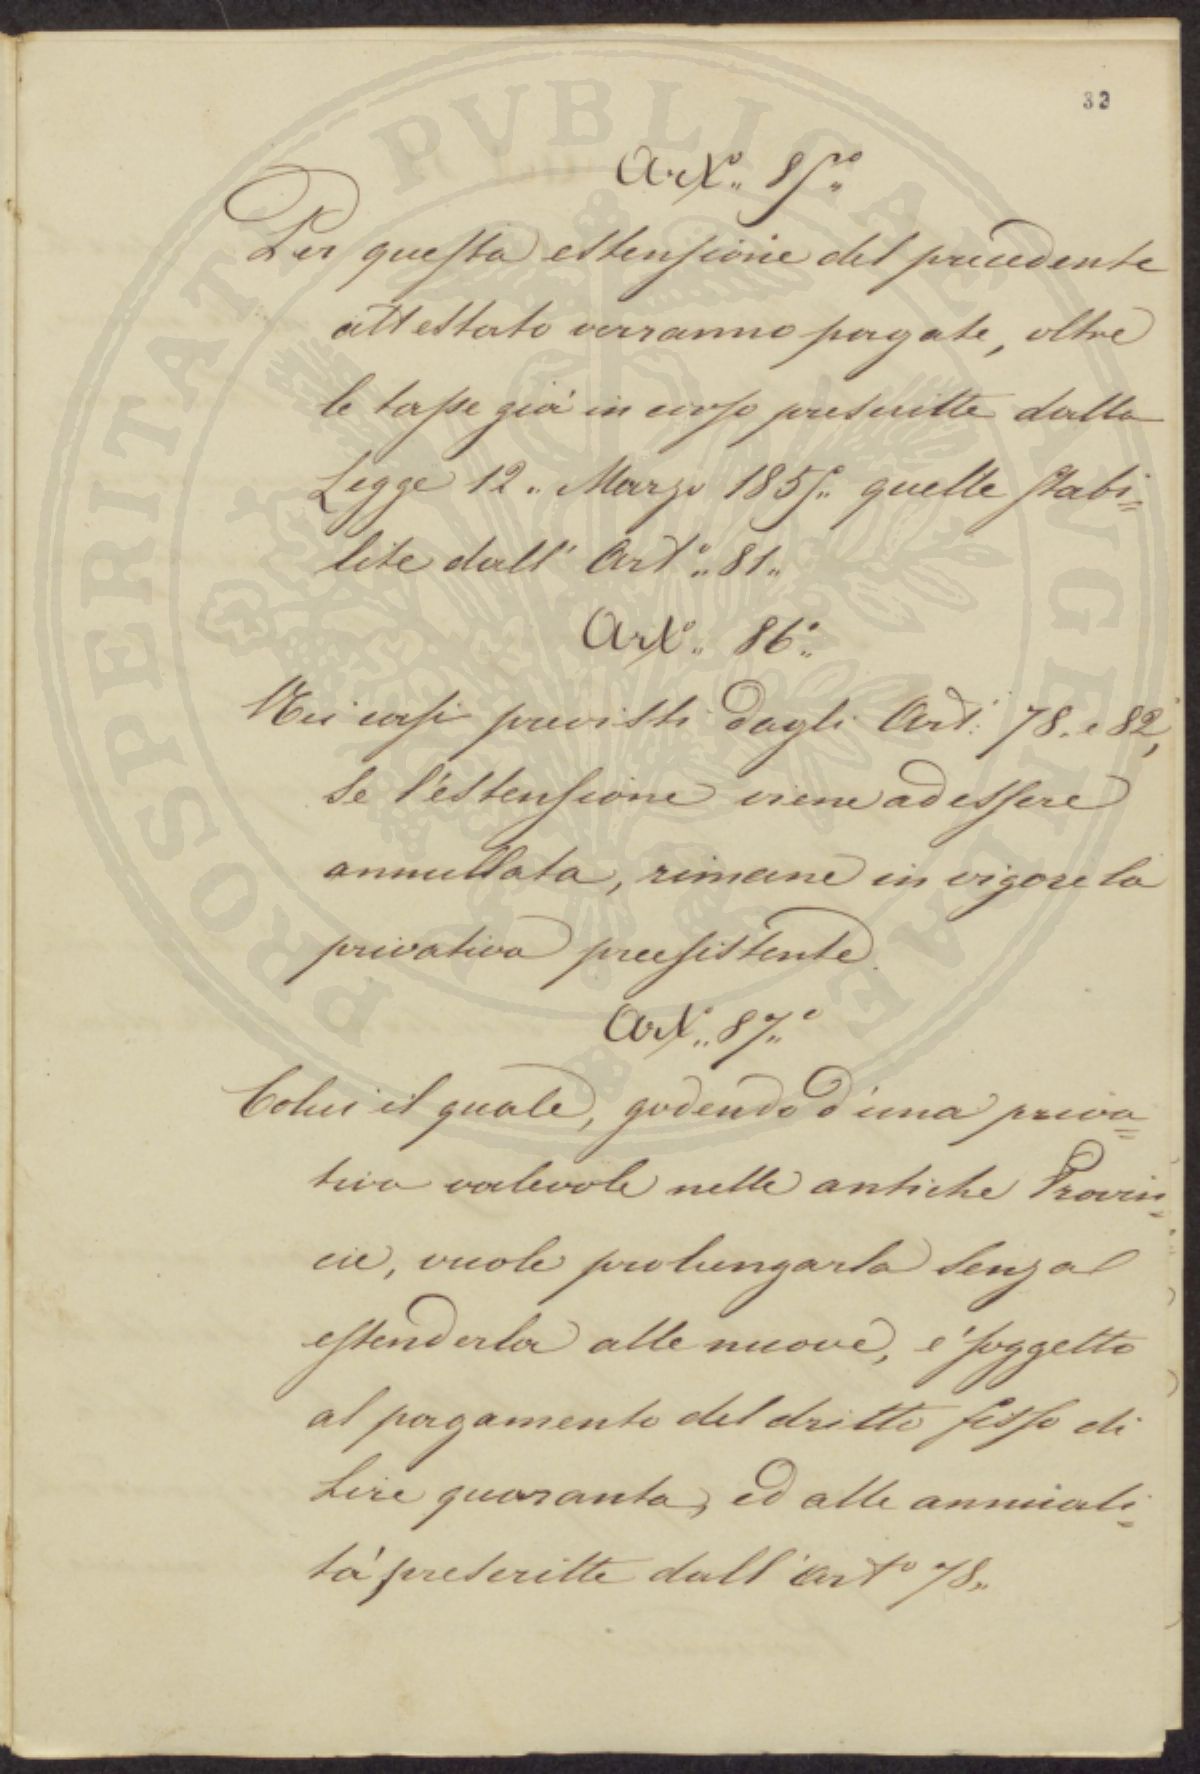 32
Art.° 85.°
Per questa estensione del precedente
attestato verranno pagate, oltre
le tasse già in corso prescritte dalla
Legge 12. Marzo 1855. quelle stabi=
lite dall' Art.° 81.
Art.° 86.°
Nei casi previsti dagli Art.i 78. e 82,
se l'estensione viene ad essere
annullata, rimane in vigore la
privativa preesistente.
Art.° 87.°
Colui il quale, godendo d'una priva=
tiva valevole nelle antiche Provin=
cie, vuole prolungarla senza
estenderla alle nuove, e' soggetto
al pagamento del dritto fisso di
Lire quaranta, ed alle annuali=
tà prescritte dall'art° 78.
PROSPERITATI PVBLICAE AVGENDAE